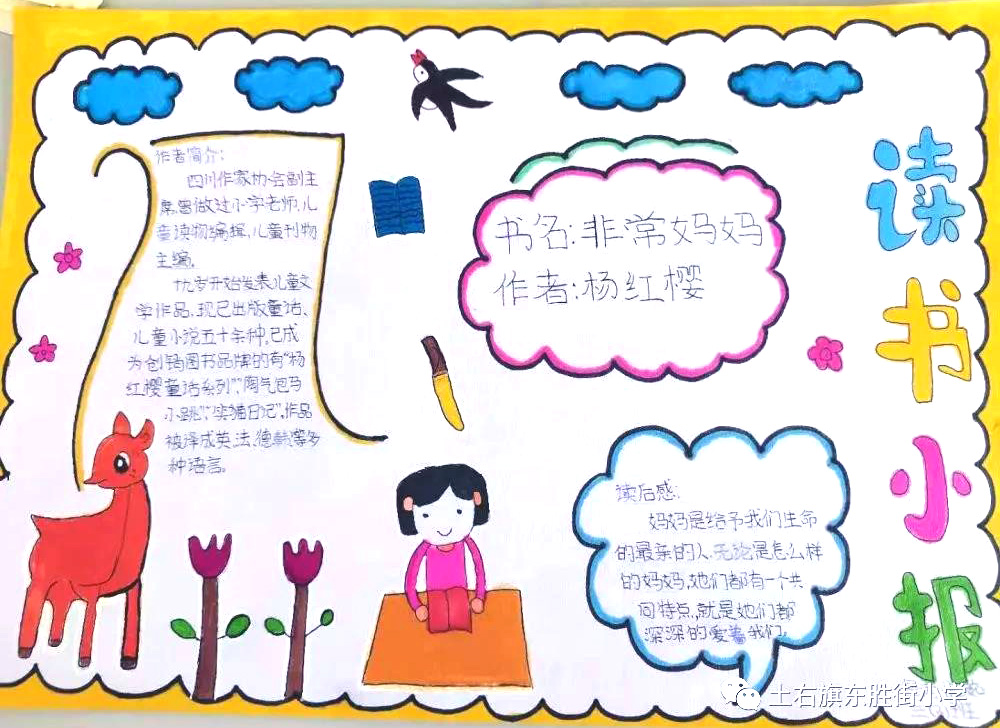 读书小报
作者简介:
四川作家协会副主
席,曾做过小学老师,儿
童读物编辑,儿童刊物
主编。
十九岁开始发表儿童文
学作品,现已出版童话、
儿童小说五十余种,已成
为创销图书品牌的有“杨
红樱童话系列”,“淘气包马
小跳”,“笑猫日记”,作品
被译成英、法、德、韩等多
种语言。
书名:非常妈妈
作者:杨红樱
读后感:
妈妈是给予我们生命
的最亲的人,无论是怎么样
的妈妈,她们都有一个共
同特点,就是她们都
深深的爱着我们。
土右旗东胜街小学